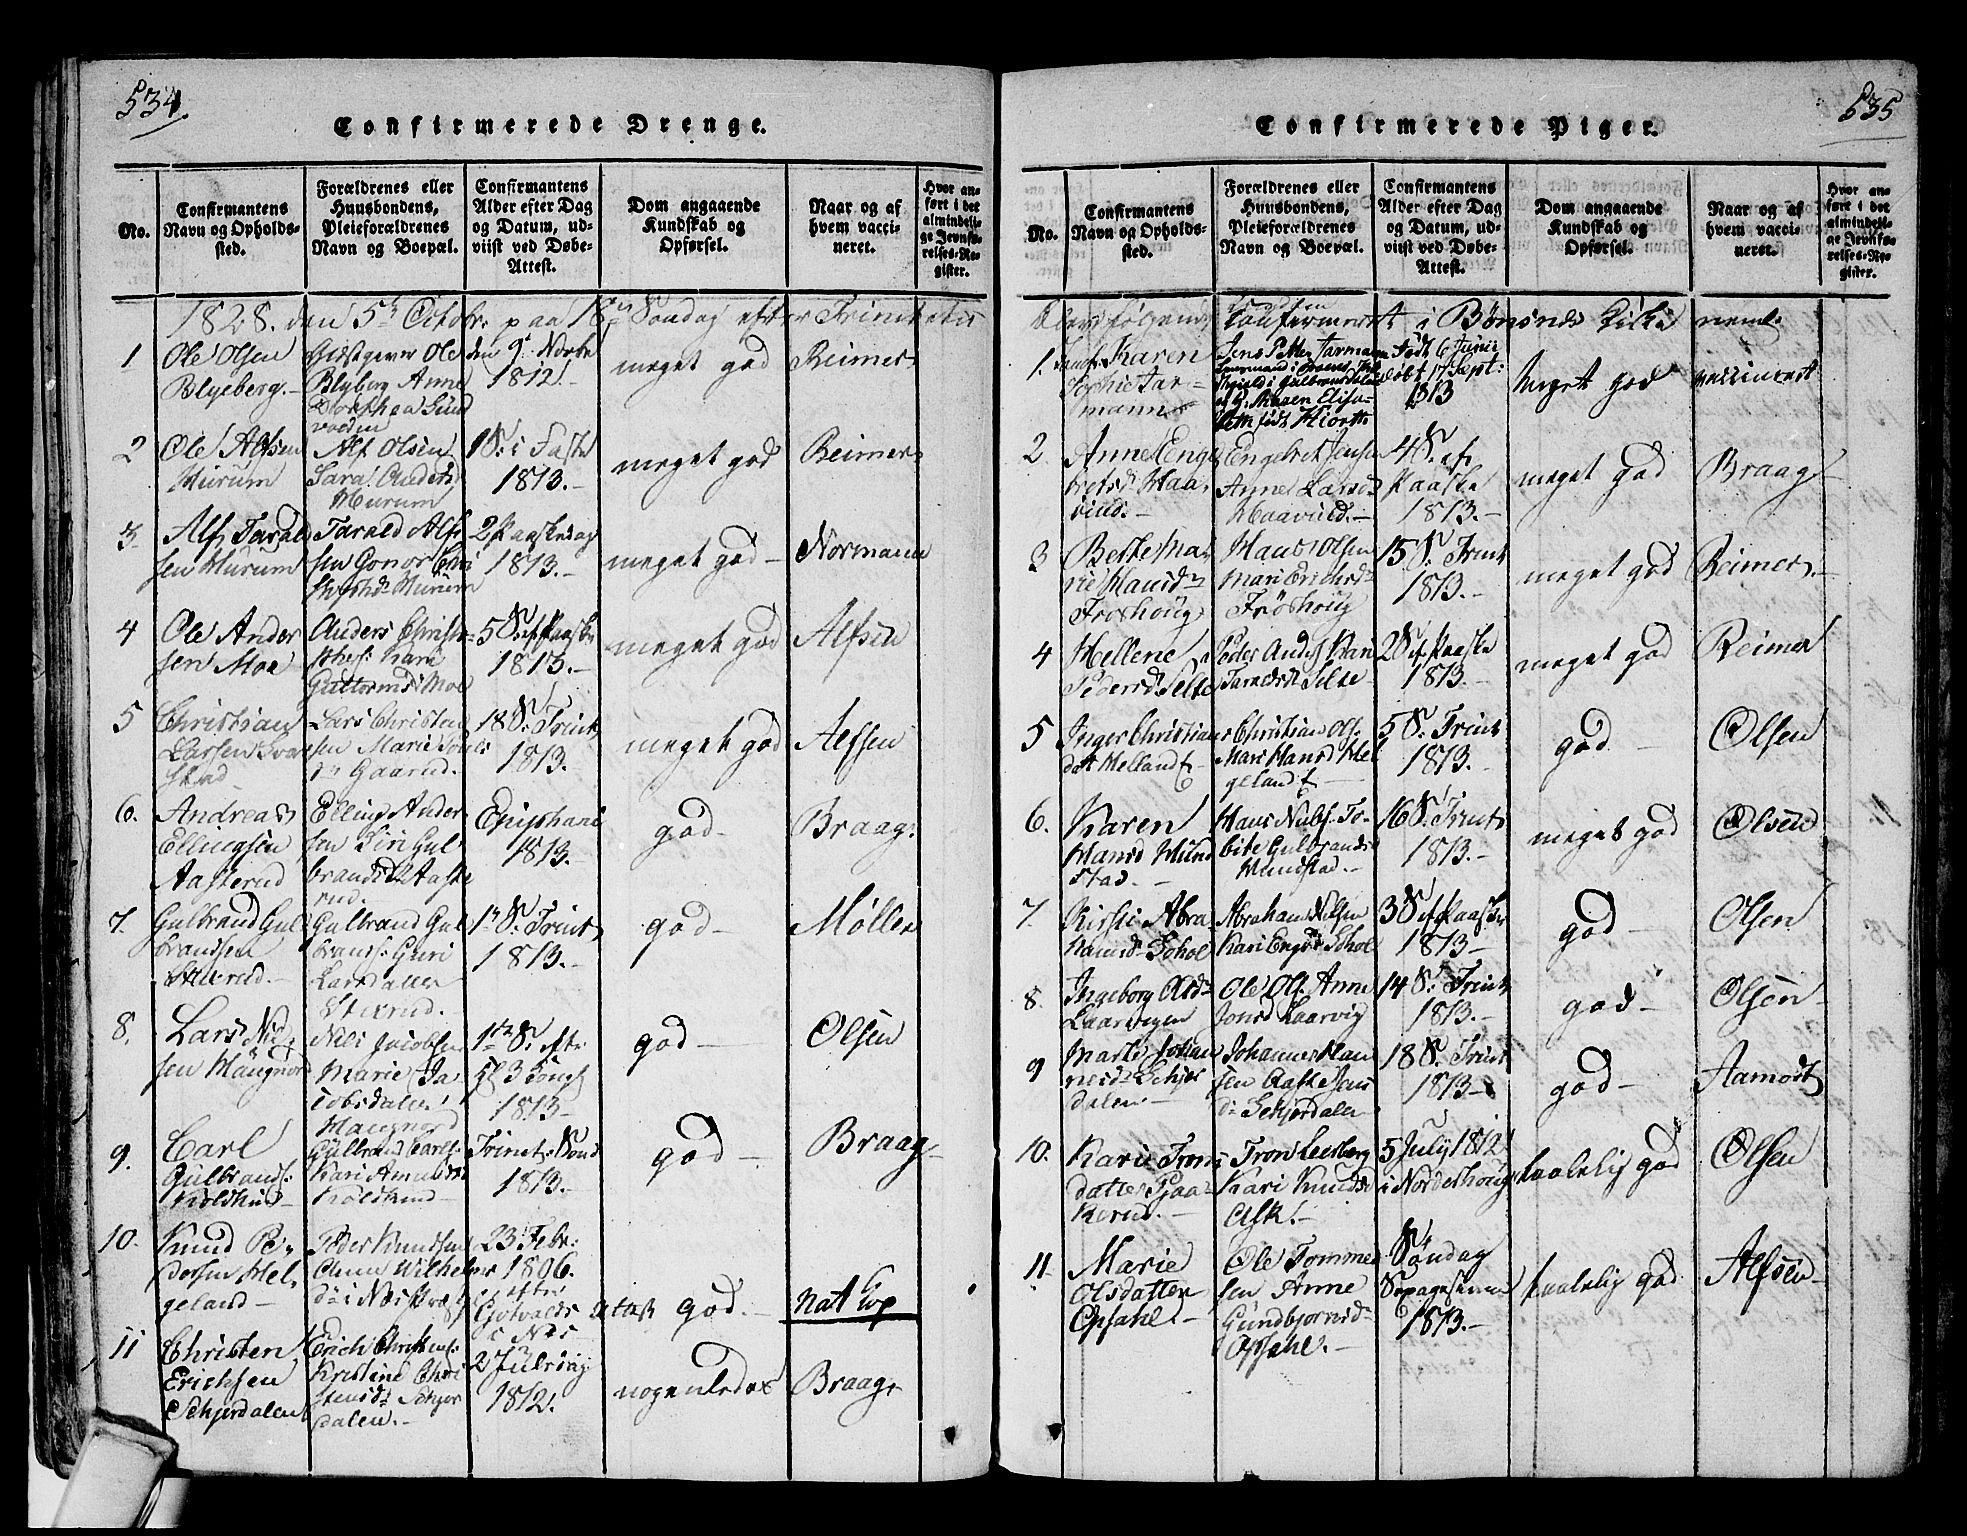 534.
Confirmerede Drenge.
No.
Confirmantens
Navn og Opholds-
sted.
Forældrenes eller
Huusbondens,
Pleieforældrenes
Navn og Boepæl.
Confirmantens
Alder efter Dag
og Datum, ud-
viist ved Døbe-
Attest.
Dom angaaende
Kundskab og
Opførsel.
Naar og af
hvem vacci-
neret.
Hvor an-
ført i det
almindeli-
ge Jevnfø-
relses-Re-
gister.
1828. den 5te Octobr: paa 18de Søndag efter Trinitatis
1
Ole Olsen
Blyeberg.-
Giestgever Ole
Blyberg Anne
Dorthea Sund
den 9 Novbr
1812.
meget god
Reimers
2
Ole Alfsen
Hurum
Alf Olsen
Sara Anders
Hurum
1 S: i Faste
1813.-
meget god
Reimers
3
Alf Tarald
sen Hurum
Tarald Alf
sen Gonor Chri
Hurum
2 Paaskedag
1813.-
meget god-
Normann
4
Ole Ander
sen Moe
Anders Christ
Kari
Guttormsd Moe
5 S. ef Paaske
1813.-
meget god
Alfsen
5
Christian
Larsen
stad
Lars Christen
sen Marie
dr Gaarud.
18 S: Trinit
1813.
meget god
Alfsen
6.
Andreas
Ellingsen
Aasterud
Elling Ander
sen Siri Gul
brandsd Aaste
rud.
Epiphani
1813.-
god-
Braag.
7.
Gulbrand Gul
brandsen
Stixrud.-
Gulbrand Gul
brands: Guri
Larsdatter
Stixrud.
1ste S. Trinit
1813.-
god-
Møller
8.
Lars Niel
sen
Niels Jacobsen
Marie Ja
cobsdatter
1ste S. efter
1813-
god-
Olsen
9.
Carl
Gulbrands:
Koldkind-
Gulbrand Carls:
Kari Amunds
Koldkind
Trinit: Sønd
1813.
god-
Braag
10.
Knud Pe-
dersen Hel-
geland-
Peder Knudsen
Anne Wilhelms
23 Febr:
1806.
efter
Attest god.-
Nat Kop
11
Christen
Erichsen
Schjerdalen
Erich Christens:
Kristine Chri
stensdr Schjer
dalen.-
2 Juledag
1812.
nogenledes
Braag
535
Confirmerede Piger.
No.
Confirmantens
Navn og Opholds-
sted.
Forældrenes eller
Huusbondens,
Pleieforældrenes
Navn og Boepæl.
Confirmantens
Alder efter Dag
og Datum, ud-
viist ved Døbe-
Attest.
Dom angaaende
Kundskab og
Opførsel.
Naar og af
hvem vacci-
neret.
Hvor an-
ført i det
almindeli-
ge Jevnfø-
relses-Re-
gister.
confirmeret i Bønsnes Kirke neml.
1.
Karen
Sophie Jar-
mann
Jens Petter Jarmann
Maren Elisa-
beth født Hiorth
født 6 Junii
døbt 17 Sept:
1813
Meget god
vaccineret
2
Anne Enge
bretsd Haa
vind.-
Engebret Jensen
Anne Larsd
4 S. ef
Paaske
1813.-
meget god
Braag
3
Berte Ma
rie Hansdr
Frøshoug
Hans Olsen
Mari Erichsdr
Frøshoug
15 S. Trinit
1813.-
meget god
Reimers.-
4
Hellene
Pedersd Selte
Peder Anders Kari
Selte
2 S ef Paaske
1813.-
meget god
Reimer
5
Inger Christians
datt Helland
Christian Ols.
Mari Hansd Hel
geland
5 S. Trinit
1813.-
god-
Olsen
6.
Karen
Hansd Mund
stad.-
Hans Nubs. To-
bite Gulbrandsd
Mundstad.-
16 S. Trinit
1813.-
meget god
Olsen
7.
Kirsti Abra
hamsd
Abraham Nilsen
Kari
3 S ef Paaske
1813-
god-
Olsen
8.
Ingeborg Olsdr
Laarvigen
Ole Ols. Anne
Jonsd Laarvig
14 S. Trinit
1813.-
god-
Olsen-
9
Marte Johan
nesdr Schjer
dalen-
Johannes Han
sen Aase Jens
dr Schjerdalen
18 S. Trinit
1813-
god-
Aamodt
10.
Kari Trons
datter Gaa-
kerud.-
Tron Leesberg
Kari Knudsd
Ask.-
5 July 1812
i Norderhoug
taalelig god
Olsen
11
Marie
Olsdatter
Opsahl.-
Ole Tomme
sen Anne
Gundbjornsdr
Opsahl.-
Søndag
Sepagesima
1813.-
taalelig god
Alfsen-